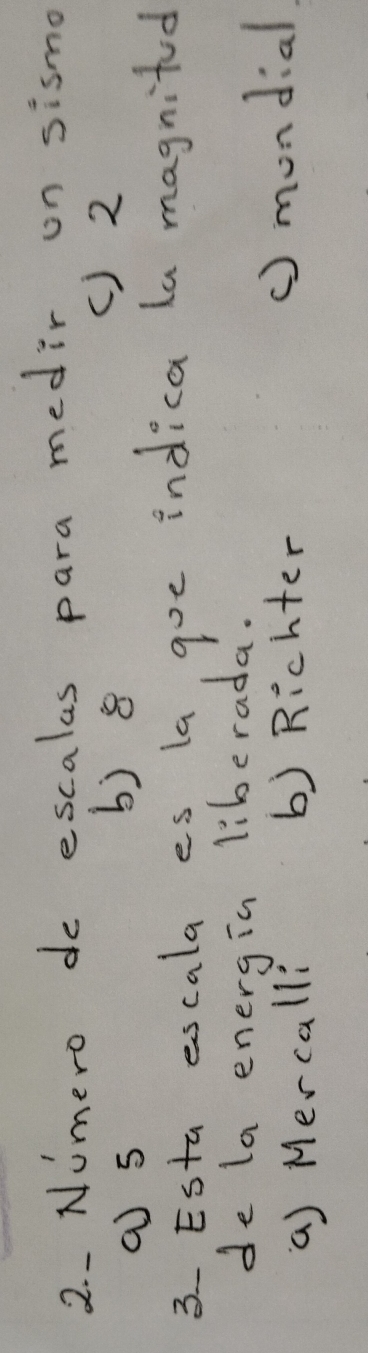 2.- Número de escalas para medir un sismo
a) 5 b) 8 c) 2
3- Esta escala es la que indica la magnitud
de la energía liberada.
a) Mercalli b) Richter c) mundial.